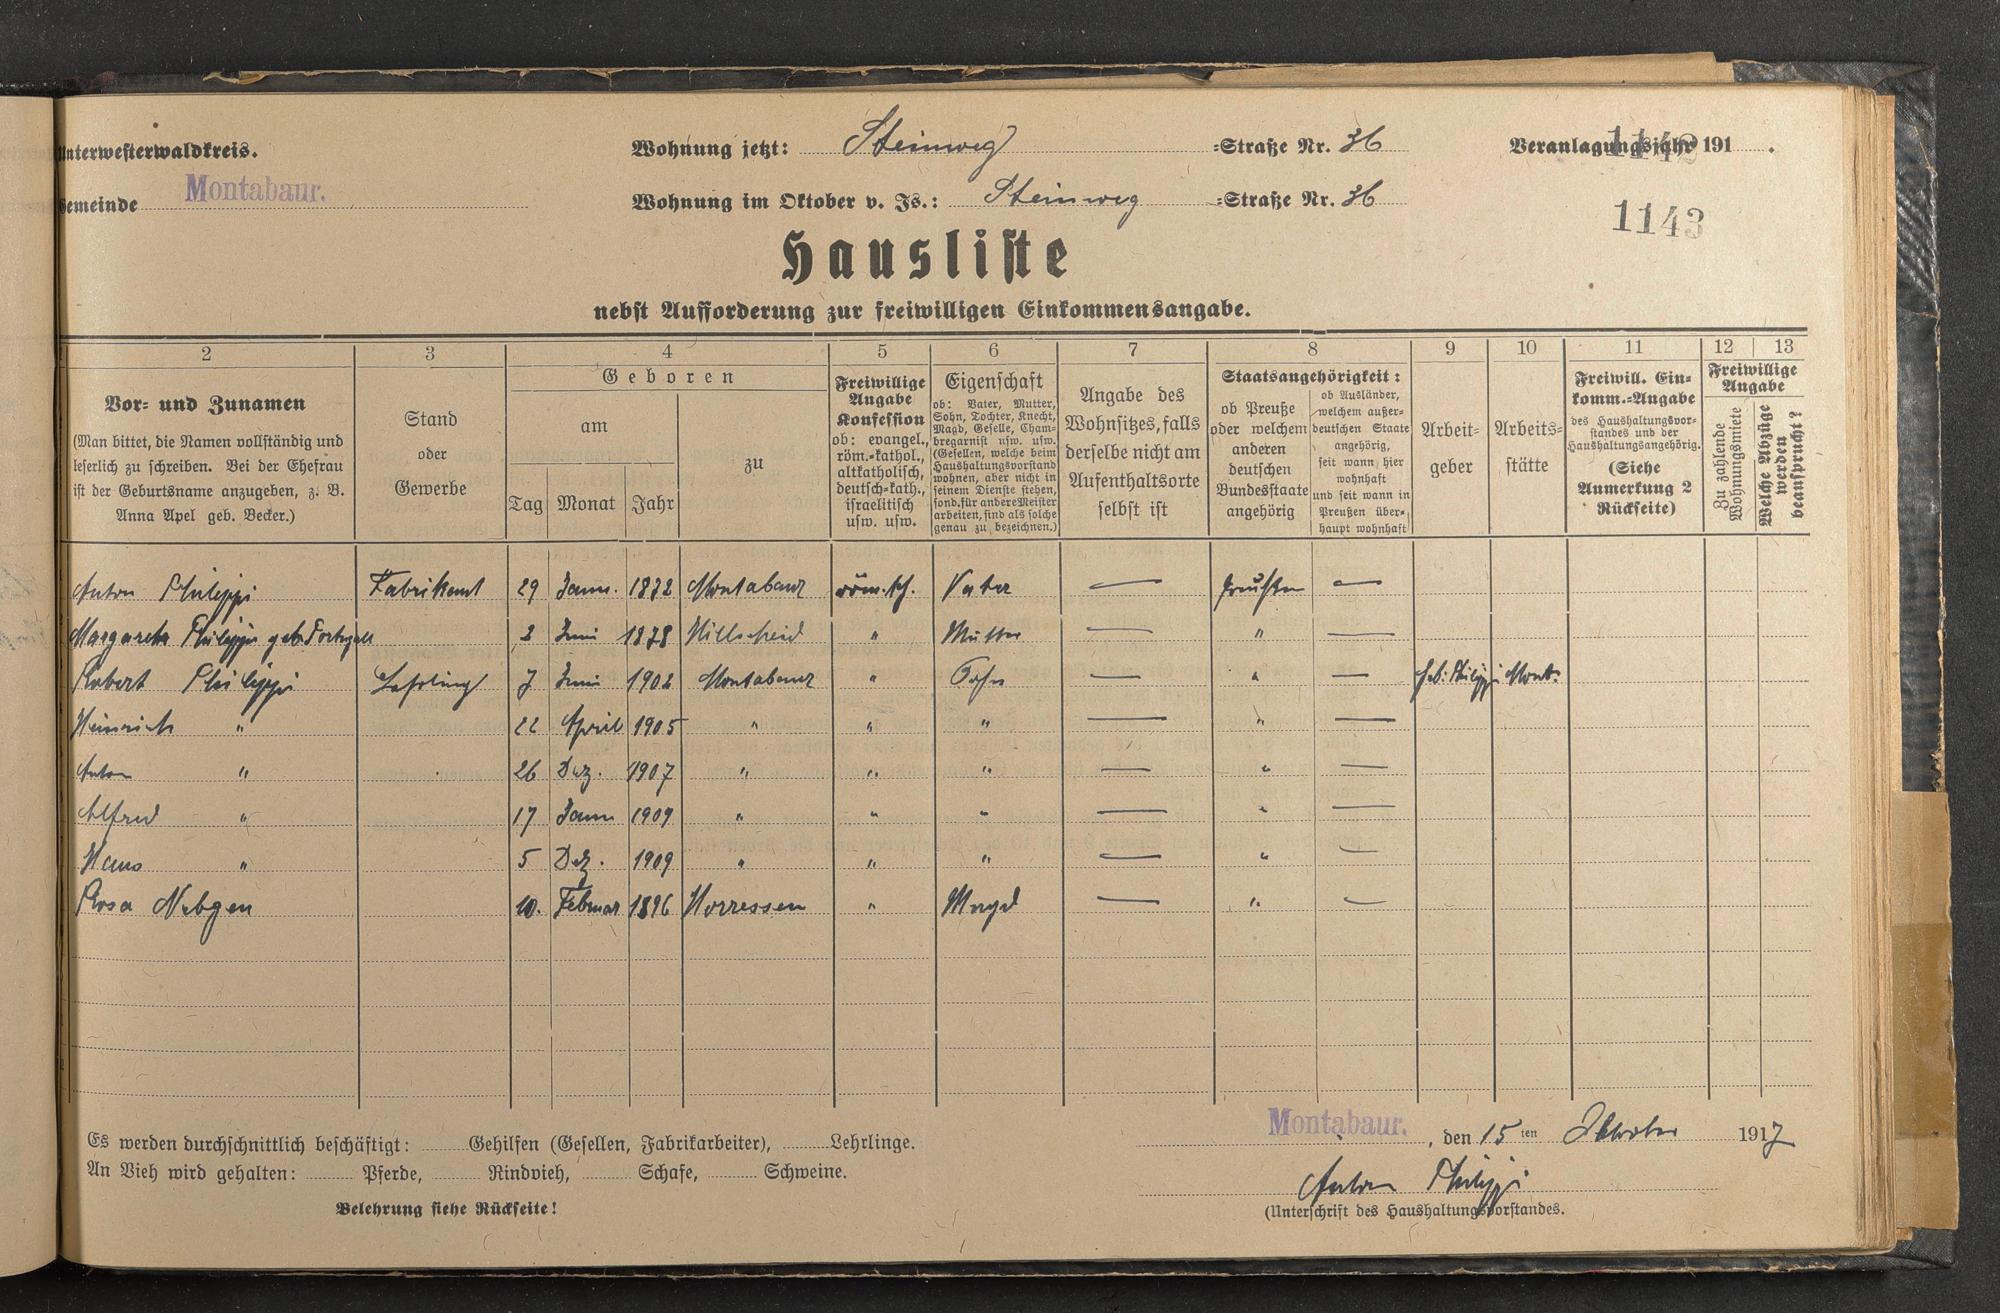 Unterwesterwaldkreis.
Wohnung jetzt: Steinweg =Straße Nr. 36
Veranlagungsjahr 191 .
1142
Gemeinde Montabaur.
Wohnung im Oktober v. Js.: Steinweg =Straße Nr. 36
1143
Hausliste
nebst Aufforderung zur freiwilligen Einkommensangabe.
2 3 4 5 6 7 8 9 10 11 12 13
Vor- und Zunamen
(Man bittet, die Namen vollständig und
leserlich zu schreiben. Bei der Ehefrau
ist der Geburtsname anzugeben, z. B.
Anna Apel geb. Becker.)
Stand
oder
Gewerbe
Geboren
am
Tag Monat Jahr
zu
Freiwillige
Angabe
Konfession
ob: evangel.,
röm.-kathol.,
altkatholisch,
deutsch-kath.,
israelitisch
usw. usw.
Eigenschaft
ob: Vater, Mutter,
Sohn, Tochter, Knecht,
Magd, Geselle, Cham-
bregarnist usw. usw.
(Gesellen, welche beim
Haushaltungsvorstand
wohnen, aber nicht in
seinem Dienste stehen,
sond. für andere Meister
arbeiten, sind als solche
genau zu bezeichnen.)
Angabe des
Wohnsitzes, falls
derselbe nicht am
Aufenthaltsorte
selbst ist
Staatsangehörigkeit:
ob Preuße
oder welchem
anderen
deutschen
Bundesstaate
angehörig
ob Ausländer,
welchem außer-
deutschen Staate
angehörig,
seit wann hier
wohnhaft
und seit wann in
Preußen über-
haupt wohnhaft
Arbeit-
geber
Arbeits-
stätte
Freiwill. Ein-
komm.-Angabe
des Haushaltungsvor-
standes und der
Haushaltungsangehörig.
(Siehe
Anmerkung 2
Rückseite)
Freiwillige
Angabe
Zu zahlende
Wohnungsmiete
Welche Abzüge
werden
beansprucht?
Anton Philippi Fabrikant 29 Jann. 1872 Montabaur röm. kh. Vater — Preußen —
Margareta Philippi geb. Portugall 2 Juni 1878 Hillscheid " Mutter — " —
Robert Philippi Lehrling 7 Juni 1902 Montabaur " Sohn — " — Geb. Philippi Mont.
Heinrich " 22 April 1905 " " " — " —
Anton " 26 Dez. 1907 " " " — " —
Alfred " 17 Jann 1909 " " " — " —
Hans " 5 Dez. 1909 " " " — " —
Rosa Nebgen 10. Februar 1896 Horressen " Magd — " —
Es werden durchschnittlich beschäftigt: Gehilfen (Gesellen, Fabrikarbeiter), Lehrlinge.
An Vieh wird gehalten: Pferde, Rindvieh, Schafe, Schweine.
Belehrung siehe Rückseite!
Montabaur. , den 15 ten Oktober 1917
Anton Philippi
(Unterschrift des Haushaltungsvorstandes.